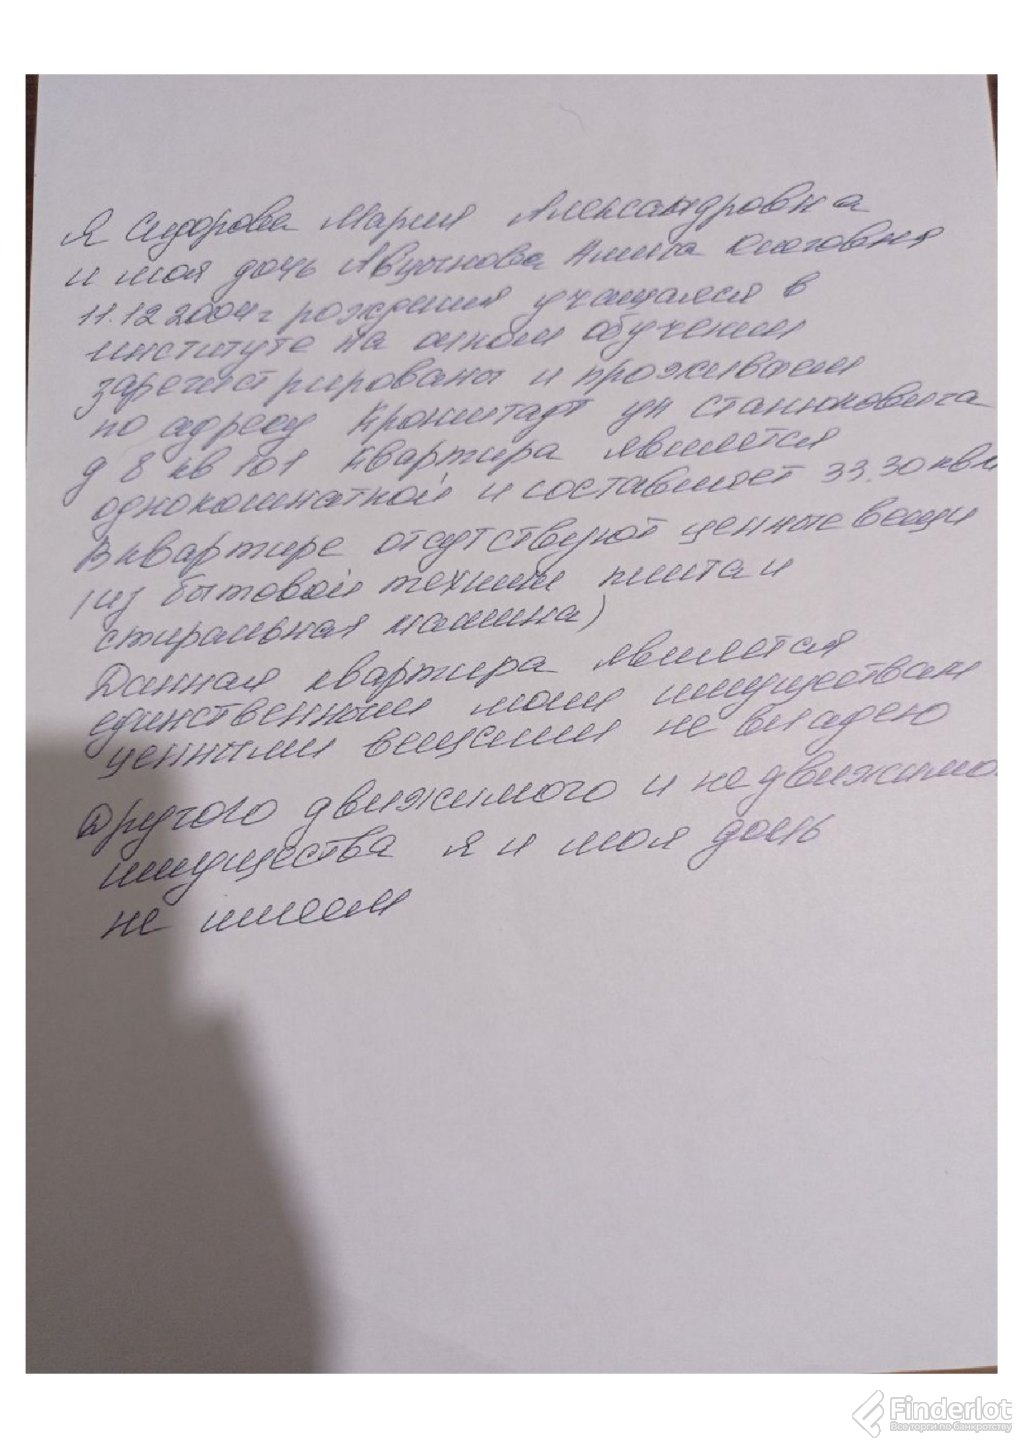 Я Сидорова Мария Александровна
и моя дочь Анита Олеговня
11.12 2004г рождения учащаяся в
институте на очном обучении
зарегистрированы и проживаем
по адресу Кронштадт ул Станюковича
д 8 кв 101 квартира является
однокомнатной и составляет 33.30 квм
В квартире отсутствуют ценные вещи
(из бытовой техники плита и
стиральная машина)
Данная квартира является
единственным моим имуществам
ценными вещами не владею
Другого движимого и недвижимо.
имущества я и моя дочь
не имеем
Finderlot
Все торги по банкротству